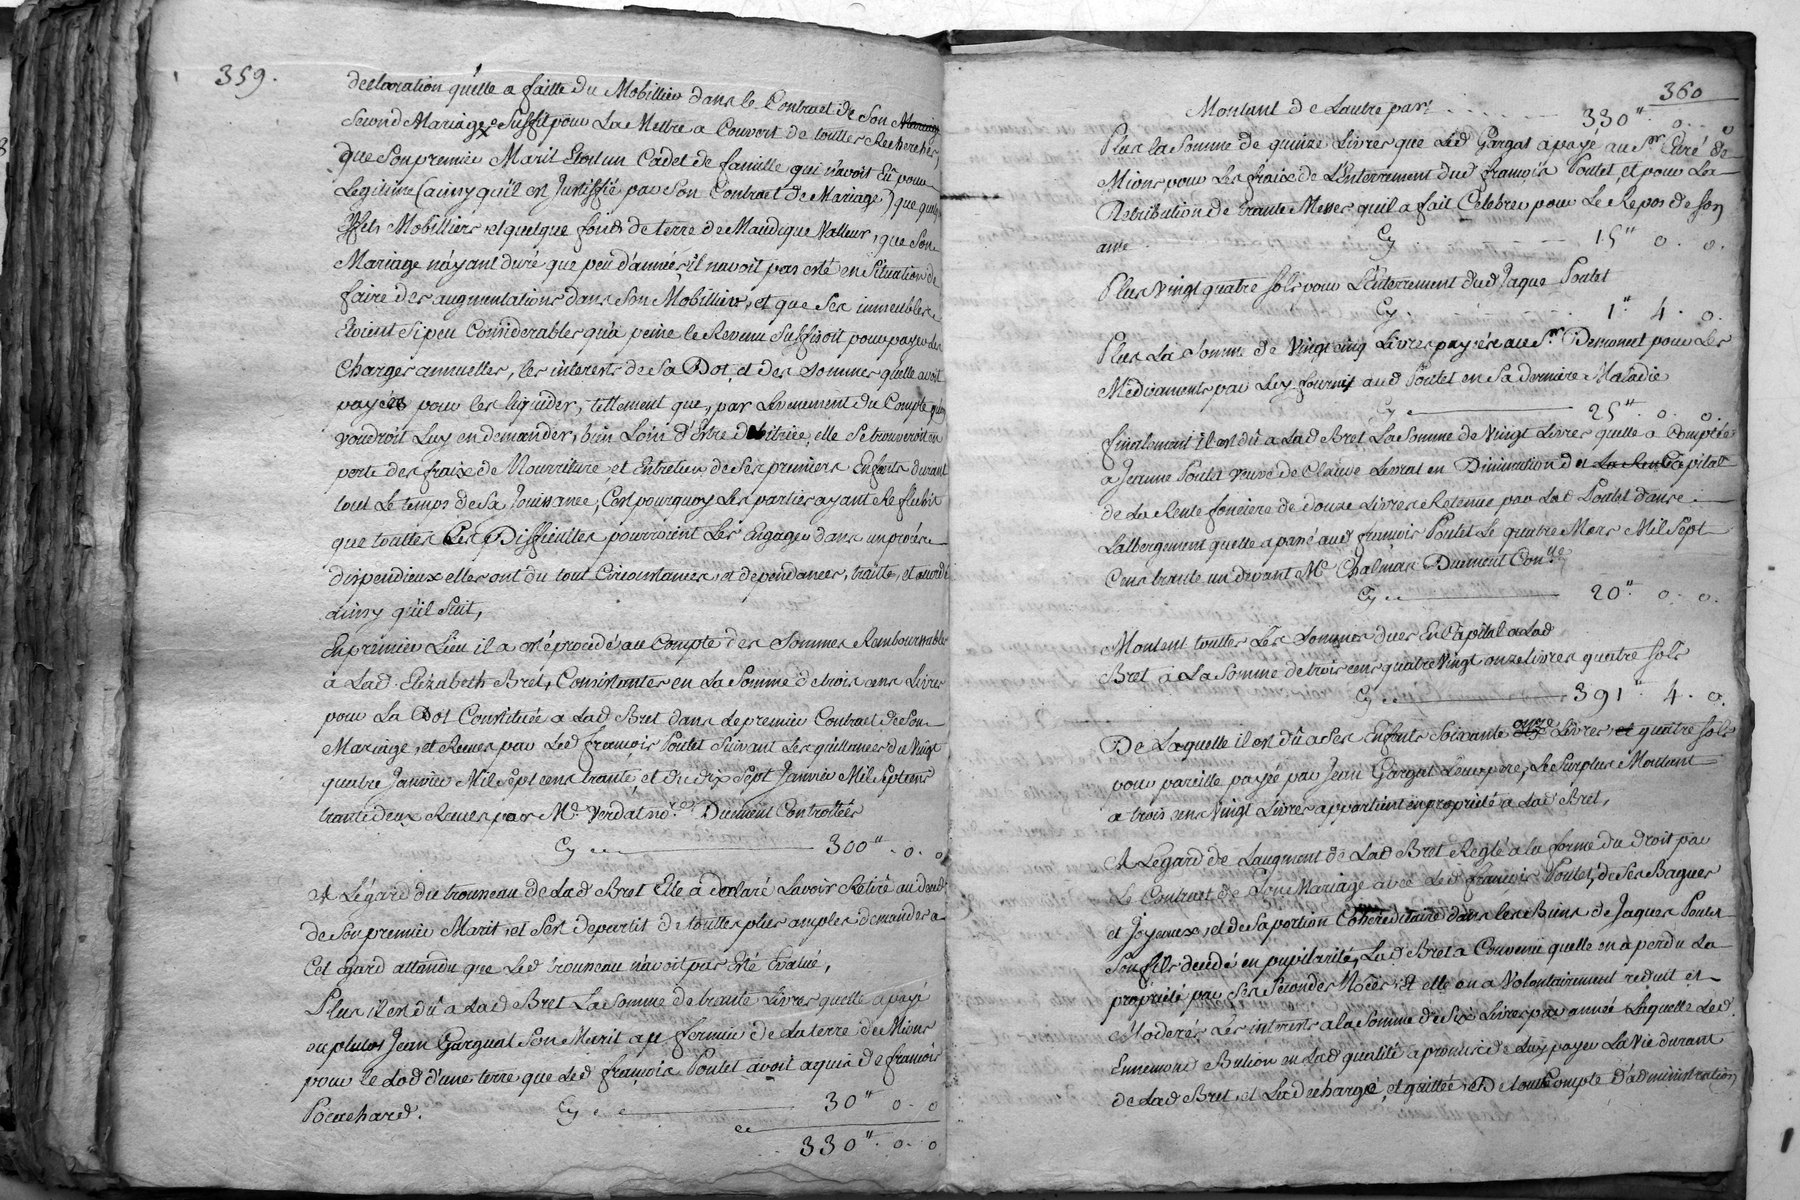 359.
declaration qu'elle a faitte du Mobillier dans le Contract de Son Mariage
Second Mariage Suffit pour La Mettre a Couvert de touttes Recherches,
que Son premier Marit Etoit un Cadet de famille qui n'avoit Eü pour
Legitime (ainsy qu'il est Justiffié par Son Contract de Mariage) que quelq
Effets Mobilliers et quelque fonds de terre de Maudique Valleur, que Son
Mariage n'ayant duré que peu d'années il n'avoit pas esté en Situation de
faire des augmentations dans Son Mobillier, et que Ses immeubles
Etoient Si peu Considerables qu'a peine le Revenu Suffisoit pour payer les
Charges annuelles, les interests de Sa Dot, et des Sommes quelle avoit
payées pour les liquider, tellement que, par L'evenement du Compte qu'on
voudroit Luy en demander, bien Loin d'Estre debitrice, elle Se trouveroit en
perte des fraix de Nourriture et Entretien de Ses premiers Enfants durant
tout Le temps de Sa Jouissance, C'est pourquoy Les parties ayant Reflechis
que touttes Ces Difficultes pourroient Les Engager dans un procés
dispendieux elles ont du tout Circonstances, et dependances, traitté, et accordé
ainsy qu'il Suit,
En premier Lieu il a esté procedé au Compte des Sommes Remboursables
à Lad. Elizabeth Bret, Consistantes en La Somme de trois cens Livres
pour La Dot Constituée a Lad Bret dans Le premier Contract de Son
Mariage, et Recues par Led françois Poulet Suivant Les quittances du Vingt
quatre Janvier Mil Sept cens trante, et du dix Sept Janvier Mil Sept cens
trante deux Recues par Me. Verdat nore. Duement Controllées
Cy 300" . 0 . 0
A L'égard du trousseau de Lad Bret Elle a declaré L'avoir Retiré au deced
de Son premier Marit, et S'est departit de touttes plus amples demandes a
Cet egard attandu que Led trousseau n'avoit pas Esté Evalué,
Plus il est dû a Lad Bret La Somme de trante Livres quelle a payé
ou plutot Jean Gargat Son Marit au fermier de La terre de Mions
pour le Lod d'une terre que Led françois Poulet avoit aquis de françois
Pocachard. Cy 30" 0 . 0
330" . 0 . 0
360
Montant de L'autre part 330" . 0 . 0
Plus la Somme de quinze Livres que Led Gargat a payé au Sr. Curé de
Mions pour Les fraix de L'Enterrement dud françois Poulet, et pour La
Retribution de trante Messes qu'il a fait Celebrer pour Le Repos de Son
ame Cy 15" 0 . 0.
Plus Vingt quatre Sols pour L'Enterrement dud Jaque Poulet
Cy 1" . 4 . 0.
Plus La Somme de Vingt cinq Livres payées au Sr. Dumont pour Les
Medicaments par Luy fournis aud Poulet en Sa derniere Maladie
Cy 25" . 0 . 0.
finalement il est dû a Lad Bret La Somme de Vingt Livres quelle a Comptée
a Jeanne Poulet veuve de Claude Levrat en Diminution du Capital
de La Rente fonciere de douze Livres Retenue par Lad Poulet dans
L'albergement quelle a passé aud françois Poulet Le quatre Mars Mil Sept
Cens trante un devant Me. Chalman Duement Conllé
Cy 20" . 0 . 0.
Montent touttes Les Sommes dues En Capital a Lad
Bret à La Somme de trois cens quatre Vingt onze livres quatre Sols
Cy 391" 4 . 0.
De Laquelle il est dû a Ses Enfants Soixante onze Livres et quatre Sols
pour pareille payée par Jean Gargat Leur pere, Le Surplus Montant
a trois cens Vingt Livres appartient en propriété a Lad Bret,
A L'egard de L'augment de Lad Bret Reglé a la forme du droit par
Le Contract de Son Mariage avec Led françois Poulet, de Ses Bagues
et Joyeaux, et de Sa portion Cohereditaire dans les Biens de Jaques Poulet
Son fils decedé en pupilarité, Lad Bret a Convenu quelle en a perdu La
propriété par Ses Secondes Noces, Et elle en a Volontairement reduit et
Moderés Les interests a la Somme de Six Livres par année Laquelle Led
Ennemond Bution en Lad qualité a promis de Luy payer La Vie durant
de Lad Bret, et La decharge, et quittée, et de tout Compte d'administration